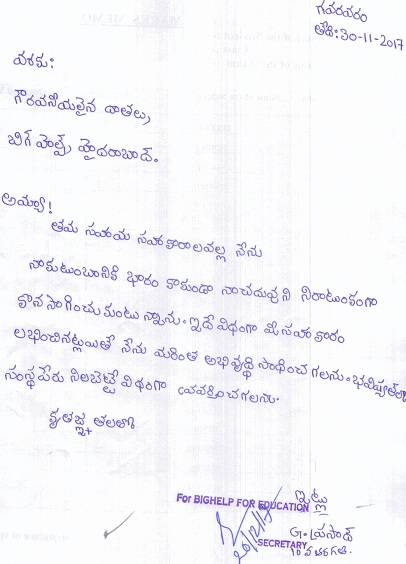 గవరవరం
తేది:30-11-2017
వరకు:
గౌరవనీయులైన దాతలు,
బిగ్ హెల్ప్, హైదరాబాద్.
అయ్యా!
తమ సహాయ సహకారాలవల్ల నేను
నాకుటుంబానికి భారం కాకుండా నాచదువుని నిరాటంకంగా
కొనసాగించుకుంటున్నాను. ఇదే విధంగా మీ సహకారం
లభించినట్లయితే నేను మరింత అభివృద్ధి సాధించగలను. భవిష్యత్తులో
సంస్థపేరు నిలబెట్టే విధంగా వ్యవహరించగలను.
కృతజ్ఞతలతో
ఇట్లు
For BIGHELP FOR EDUCATION
G. ప్రసాద్
SECRETARY
10వ తరగతి.
20/12/17